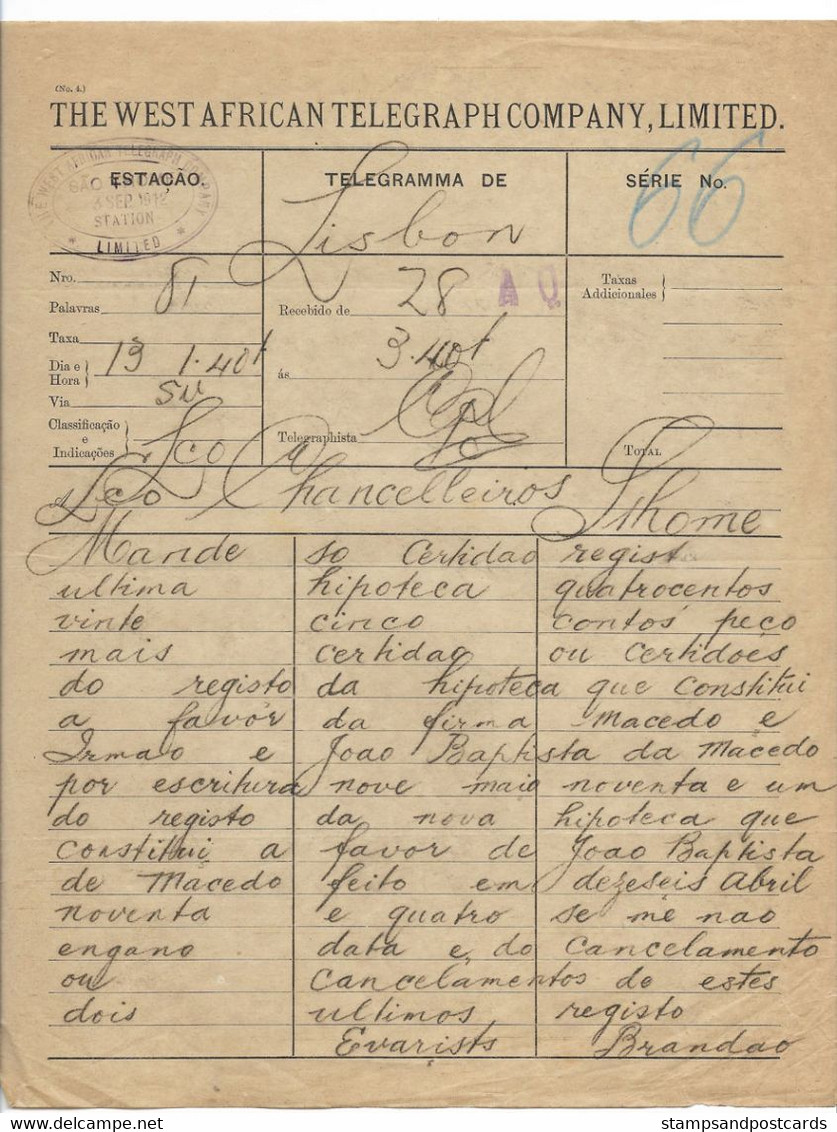 (No. 4.)
THE WEST AFRICAN TELEGRAPH COMPANY, LIMITED.
THE WEST AFRICAN TELEGRAPH COMPANY
SÃO
SEP 1912
STATION
* LIMITED *
ESTAÇÃO. TELEGRAMMA DE SÉRIE No.
Lisbon 66
Nro. 81 Recebido de 28 A Q Taxas Addicionales
Palavras
Taxa
Dia e Hora 13 1.40t ás 3.40t
Via
Classificação e Indicações Lco Telegraphista TOTAL
Lco Chancelleiros Sthome
Mande so certidao regist
ultima hipoteca quatrocentos
vinte cinco contos peço
mais certidao ou certidoes
do registo da hipoteca que constitui
a favor da firma Macedo e
Irmao e Joao Baptista da Macedo
por escritura nove maio noventa e um
do registo da nova hipoteca que
constitui a favor de Joao Baptista
de Macedo feito em dezeseis Abril
noventa e quatro se me nao
engano data e do cancelamento
ou cancelamentos de estes
dois ultimos registo
Evaristo Brandao
stampsandpostcards